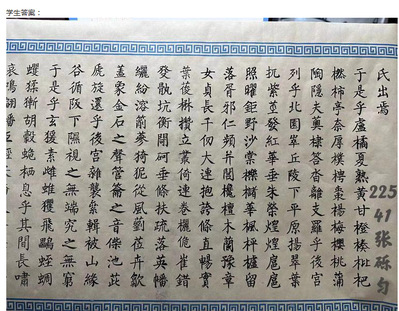 学生答案：
氏出焉
于是乎盧橘夏熟黃甘橙楱枇杷
橪柿亭奈厚樸梬棗楊梅櫻桃蒲
陶隱夫薁棣答沓離支羅乎後宮
列乎北園丘陵下平原揚翠葉
扤紫莖發紅華垂朱榮煌煌扈扈
照曜鉅野沙棠櫟櫧華楓枰櫨留
落胥邪仁頻并閭欃檀木蘭豫章
女貞長千仞大連抱誇條直暢實
葉葰楙攢立叢倚連卷欐佹崔錯
發骫坑衡閜砢垂條扶疏落英幡
纚紛溶萷蔘猗狔從風藰莅卉歙
蓋象金石之聲管籥之音偨池茈
虒旋還乎後宮雜襲絫輯被山緣
谷循阪下隰視之無端究之無窮
于是乎玄猨素雌蜼玃飛蠝蛭蜩
蠼猱獑胡豰蛫栖息乎其間長嘯
哀鳴翩幡互經
225
41
张砾匀